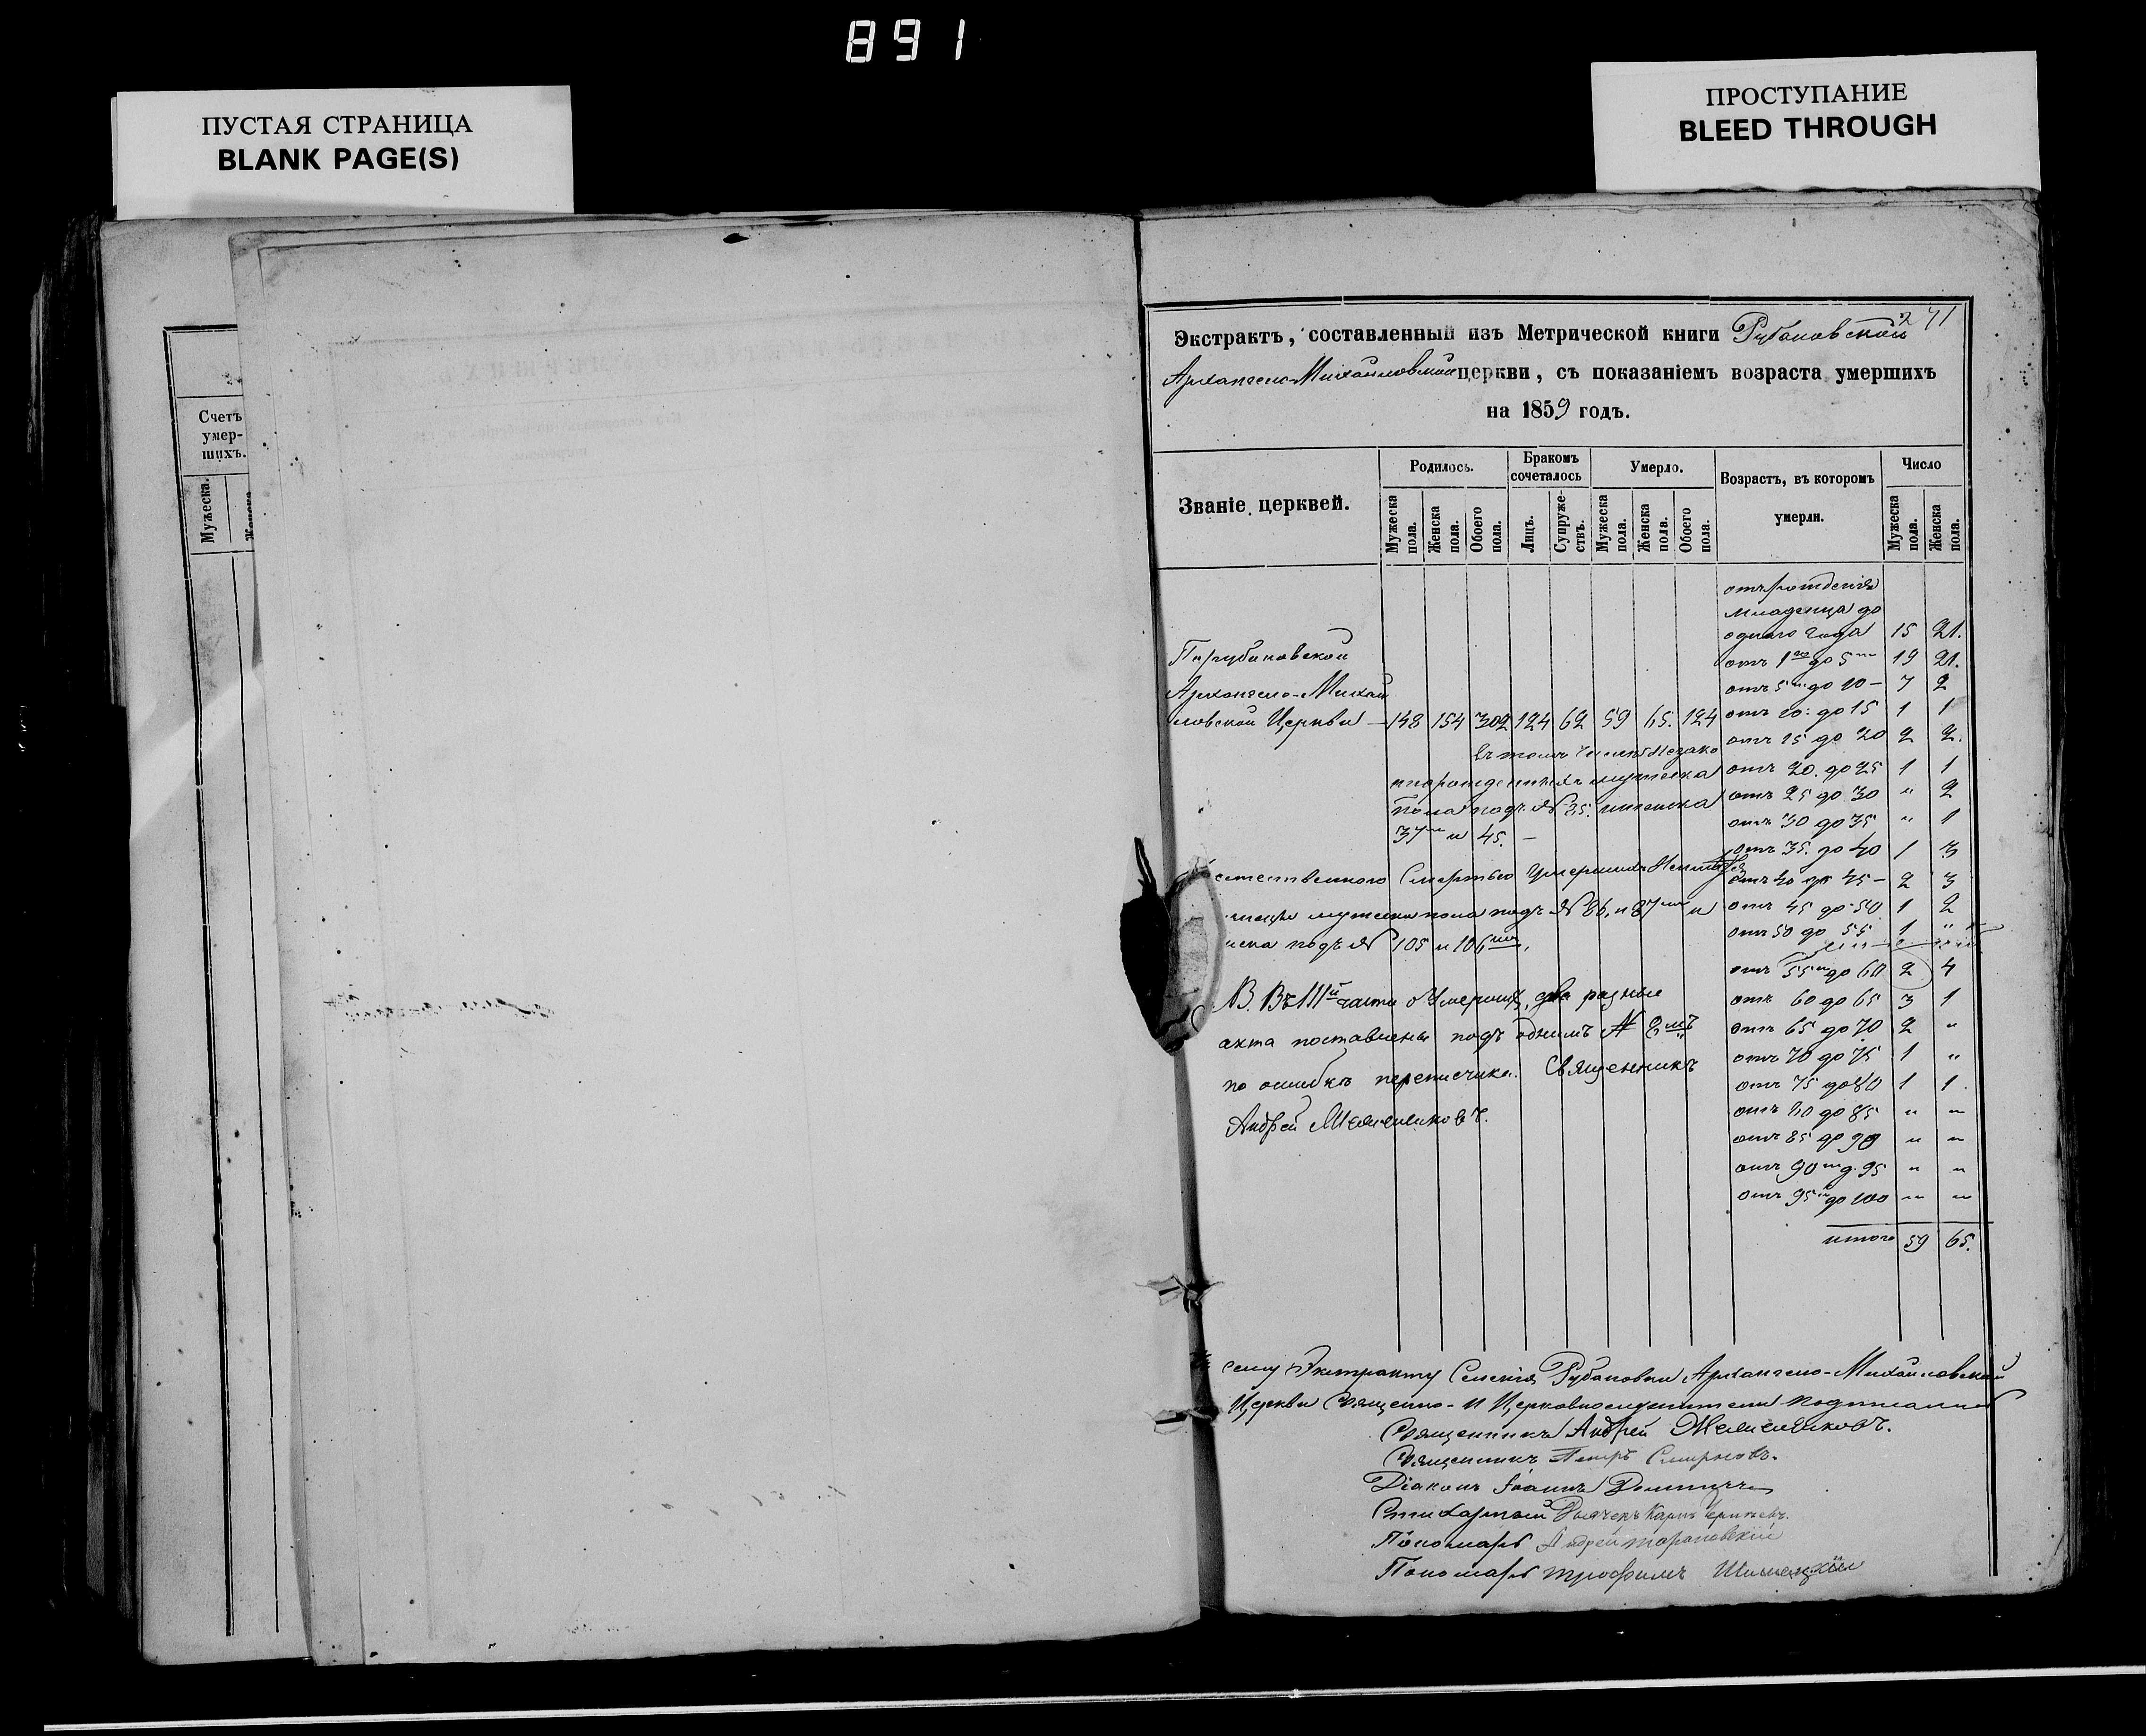 891
ПУСТАЯ СТРАНИЦА
BLANK PAGE(S)
ПРОСТУПАНИЕ
BLEED THROUGH
Счетъ
умер-
шихъ.
Мужеска.
241
Экстрактъ, составленный изъ Метрической книги Рубановской
Архангело-Михайловской церкви, съ показаніемъ возраста умершихъ
на 1859 годъ.
Званіе церквей.
Родилось.
Бракомъ сочеталось
Умерло.
Возрастъ, въ которомъ умерли.
Число
Мужеска пола.
Женска пола.
Обоего пола.
Лицъ.
Супруже-ствъ.
Мужеска пола.
Женска пола.
Обоего пола.
Мужеска пола.
Женска пола.
отъ рожденія
младенца до
одного года 15 21.
отъ 1го до 5ти 19 21.
отъ 5ти до 10 – 7 2
Архангело-Михай
ловской Церкви – 148 154 302 124 62 59 65. 124
отъ 10. до 15 1 1
отъ 15 до 20 2 2.
отъ 20. до 25 1 1
отъ 25 до 30 " 2
отъ 30 до 35 " 1
отъ 35. до 40 1 3
отъ 40 до 45 – 2 3
отъ 45 до 50 1 2
отъ 50 до 55 1 "
отъ 55ти до 60 2 4
отъ 60 до 65 3 1
отъ 65 до 70 2 "
отъ 70 до 75 1 "
отъ 75 до 80 1 1.
отъ 80 до 85 " "
отъ 85 до 90 " "
отъ 90ти д. 95 " "
отъ 95ти до 100 " "
итого 59 65.
въ томъ числѣ незако
ннорожденныхъ мужеска
пола подъ № 25. женска
37ми и 45. –
ественною Смертью умершихъ
мужеска пола подъ № 86. и 87ми и
нска подъ № 105 и 106ти.
NB. Въ IIIй части о Умершихъ, два разные
акта поставлены подъ однимъ № 2мъ
по ошибкѣ переписчика. Священникъ
Андрей Мелиешковъ.
сему Экстракту Селенія Рубановки Архангело-Михайловской
Церкви Священно- и Церковнослужители подписались
Священникъ Андрей
Священникъ Петръ Смирновъ.
Діаконъ Іоаннъ
Стихарный Дьячекъ Карпъ
Пономарь Андрей
Пономарь Трофимъ